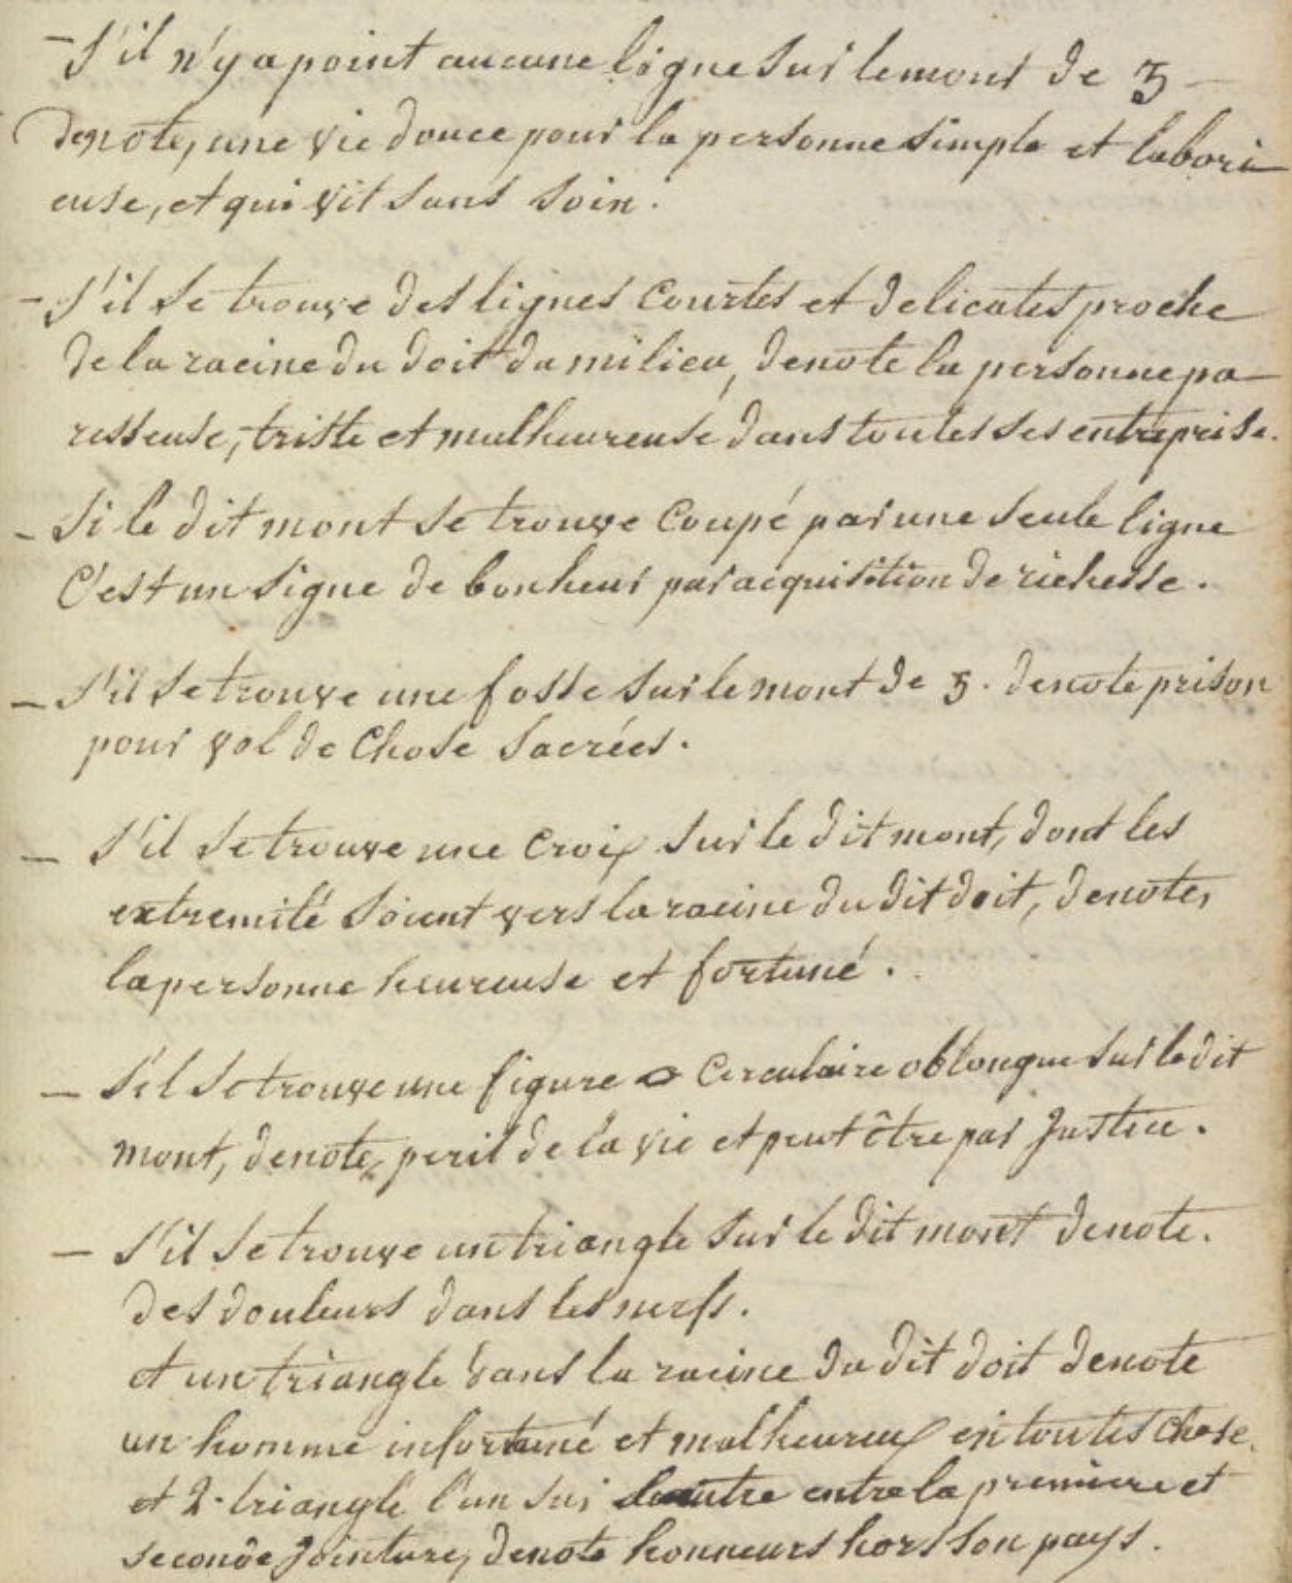 - S'il n'y a point aucune ligne sur le mont de ♄ -
denote, une vie douce pour la personne simple et labori
euse, et qui vit sans soin.
- S'il se trouve des lignes courtes et delicates proche
de la racine du doit du milieu, denote la personne pa
resseuse, triste et malheureuse dans toutes ses entreprise.
- Si le dit mont se trouve coupé par une seule ligne
C'est un signe de bonheur par acquisition de richesse.
- S'il se trouve une fosse sur le mont de ♄. denote prison
pour vol de chose sacrées.
- S'il se trouve une croix sur le dit mont, dont les
extremité soient vers la racine du dit doit, denote,
la personne heureuse et fortuné.
- S'il se trouve une figure circulaire oblongue sur le dit
mont, denote, peril de la vie et peut être par Justice.
- S'il se trouve un triangle sur le dit mont denote.
des douleurs dans les nerfs.
et un triangle dans la racine du dit doit denote
un homme infortuné et malheureux en toutes chose.
et 2. triangle l'un sur l'autre entre la premiere et
seconde Jointure, denote honneurs hors son pays.